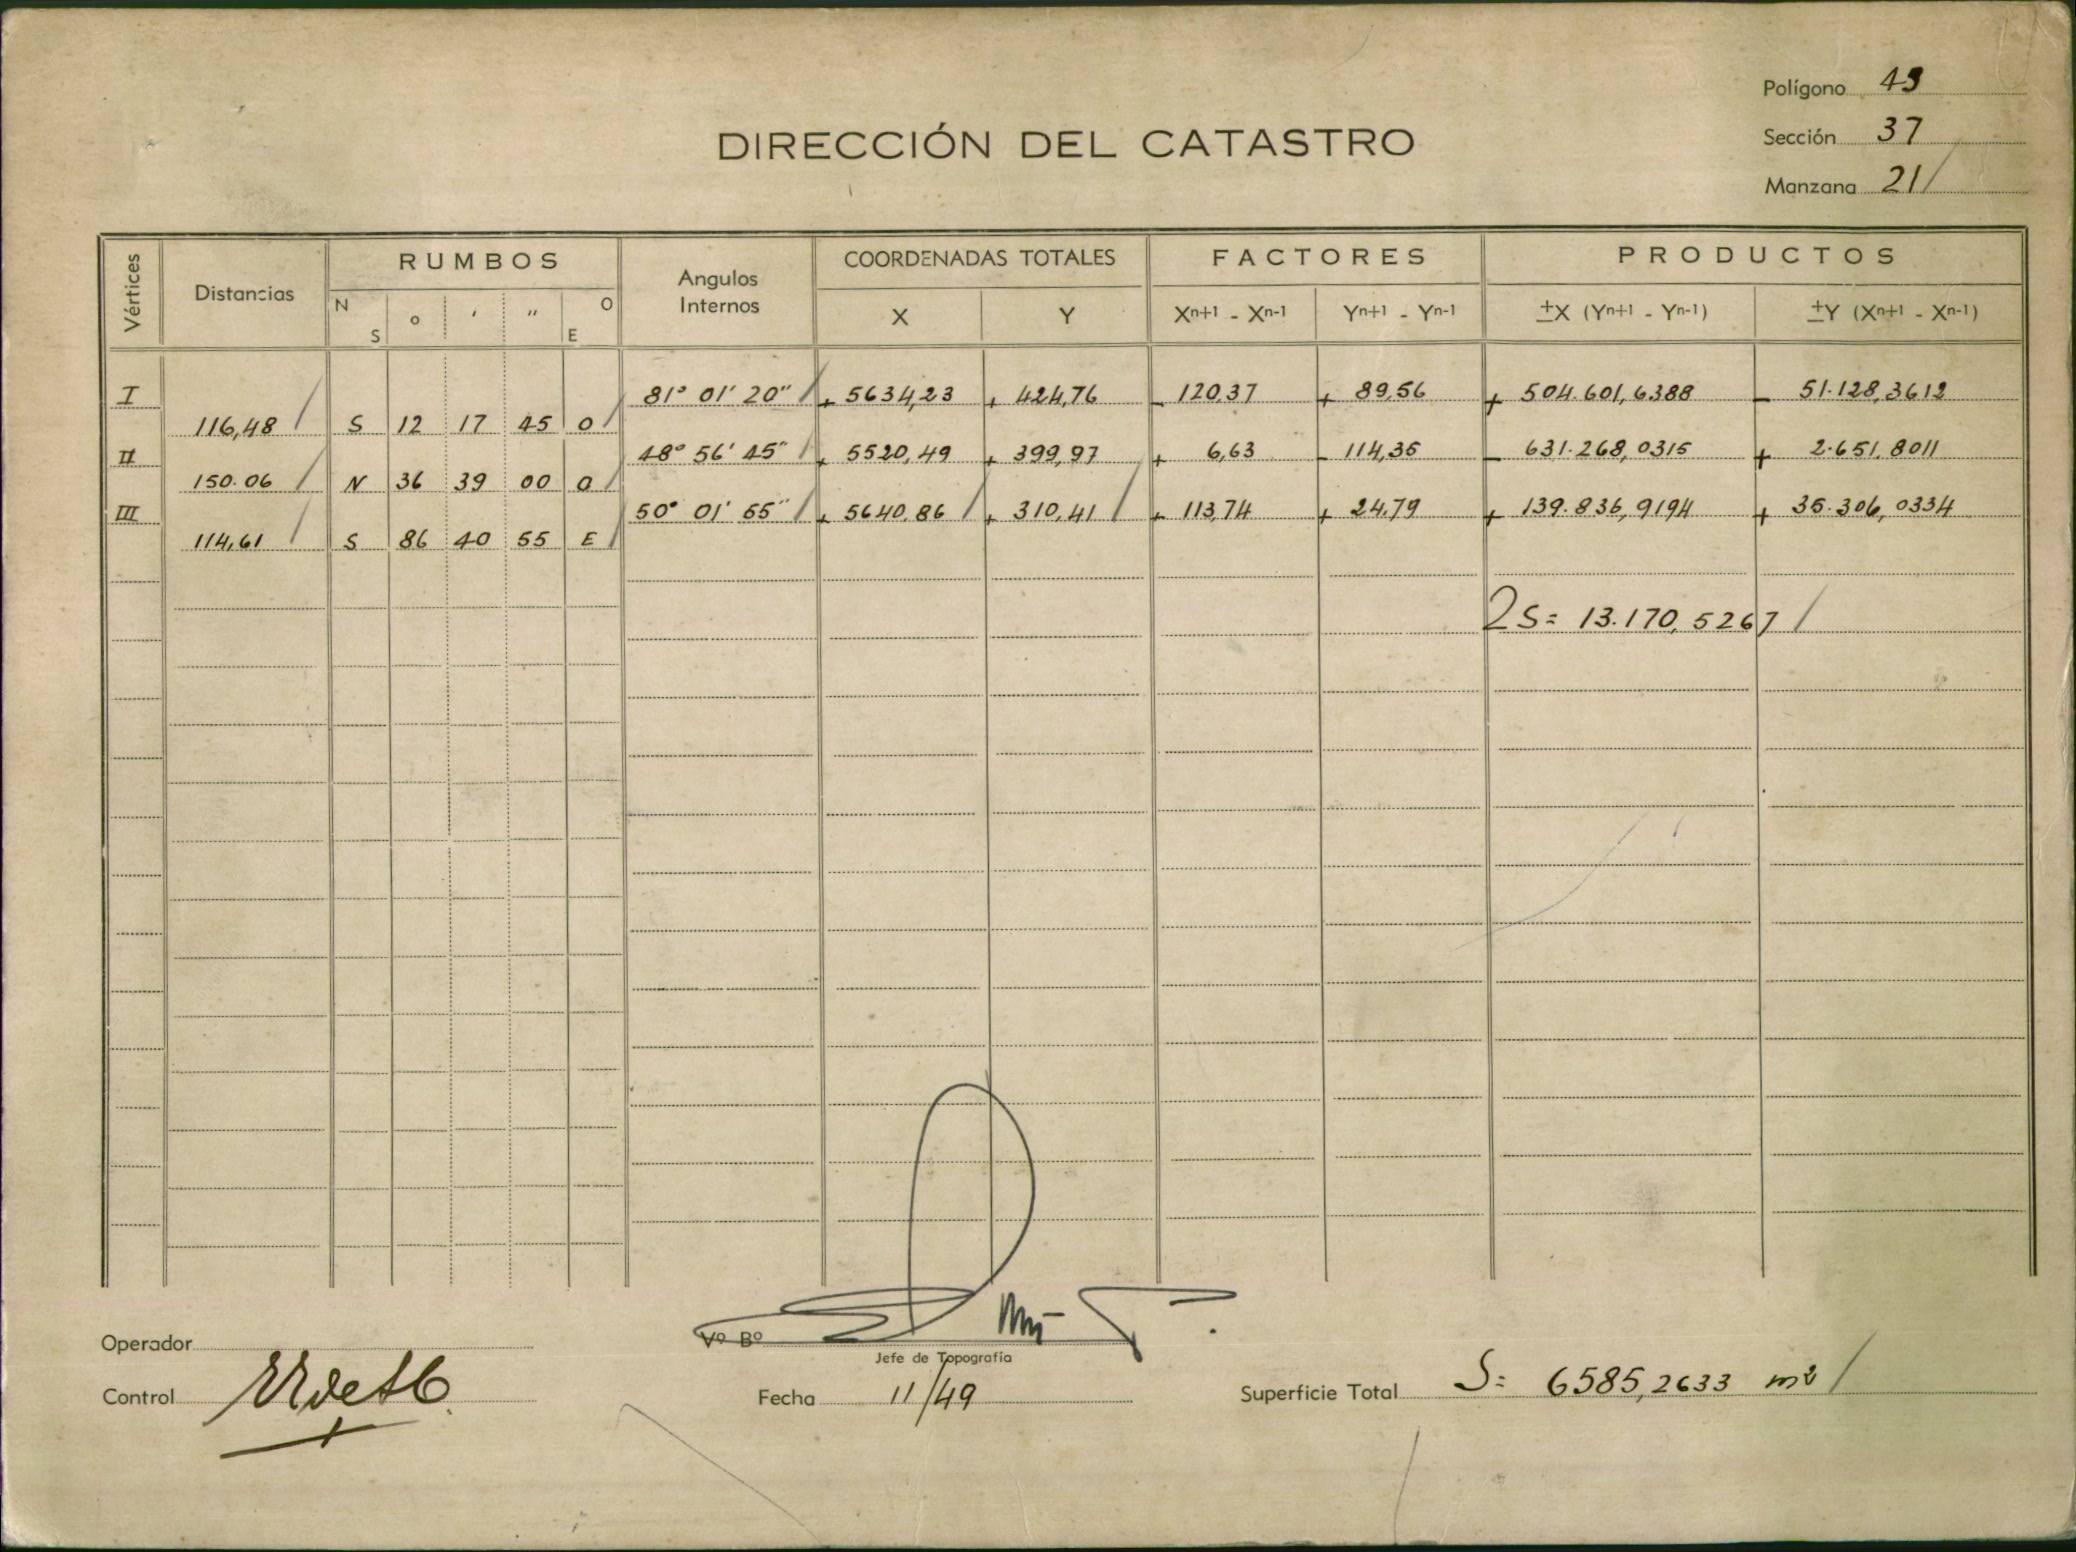 Polígono 43
DIRECCIÓN DEL CATASTRO
Sección 37
Manzana 21/
Vértices Distancias RUMBOS Angulos Internos COORDENADAS TOTALES FACTORES PRODUCTOS
N S ° ' '' O E X Y Xn+1 - Xn-1 Yn+1 - Yn-1 ±X (Yn+1 - Yn-1) ±Y (Xn+1 - Xn-1)
I 81° 01' 20" / + 5634,23 + 424,76 - 120,37 + 89,56 + 504.601,6388 - 51.128,3612
116,48 / S 12 17 45 O /
II 48° 56' 45" / + 5520,49 + 399,97 + 6,63 - 114,35 - 631.268,0315 + 2.651,8011
150.06 / N 36 39 00 O /
III 50° 01' 55" / + 5640,86 / + 310,41 / + 113,74 + 24,79 + 139.836,9194 + 35.306,0334
114,61 / S 86 40 55 E /
2S = 13.170,5267 /
Operador
Vº Bº
Jefe de Topografía
Control
Fecha 11/49
Superficie Total S = 6585,2633 m² /